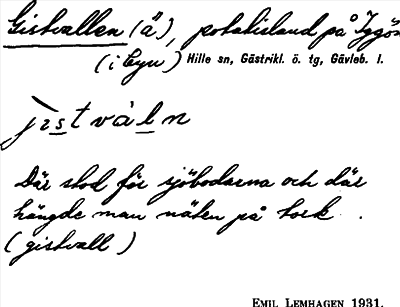 Gistvallen (ä), potatisland på Iggön
(i byn) Hille sn, Gästrikl. ö. tg, Gävleb. l.
jìstvàln
Där stod för sjöbodarna och där
hängde man näten på tork.
(gistvall)
EMIL LEMHAGEN 1931.